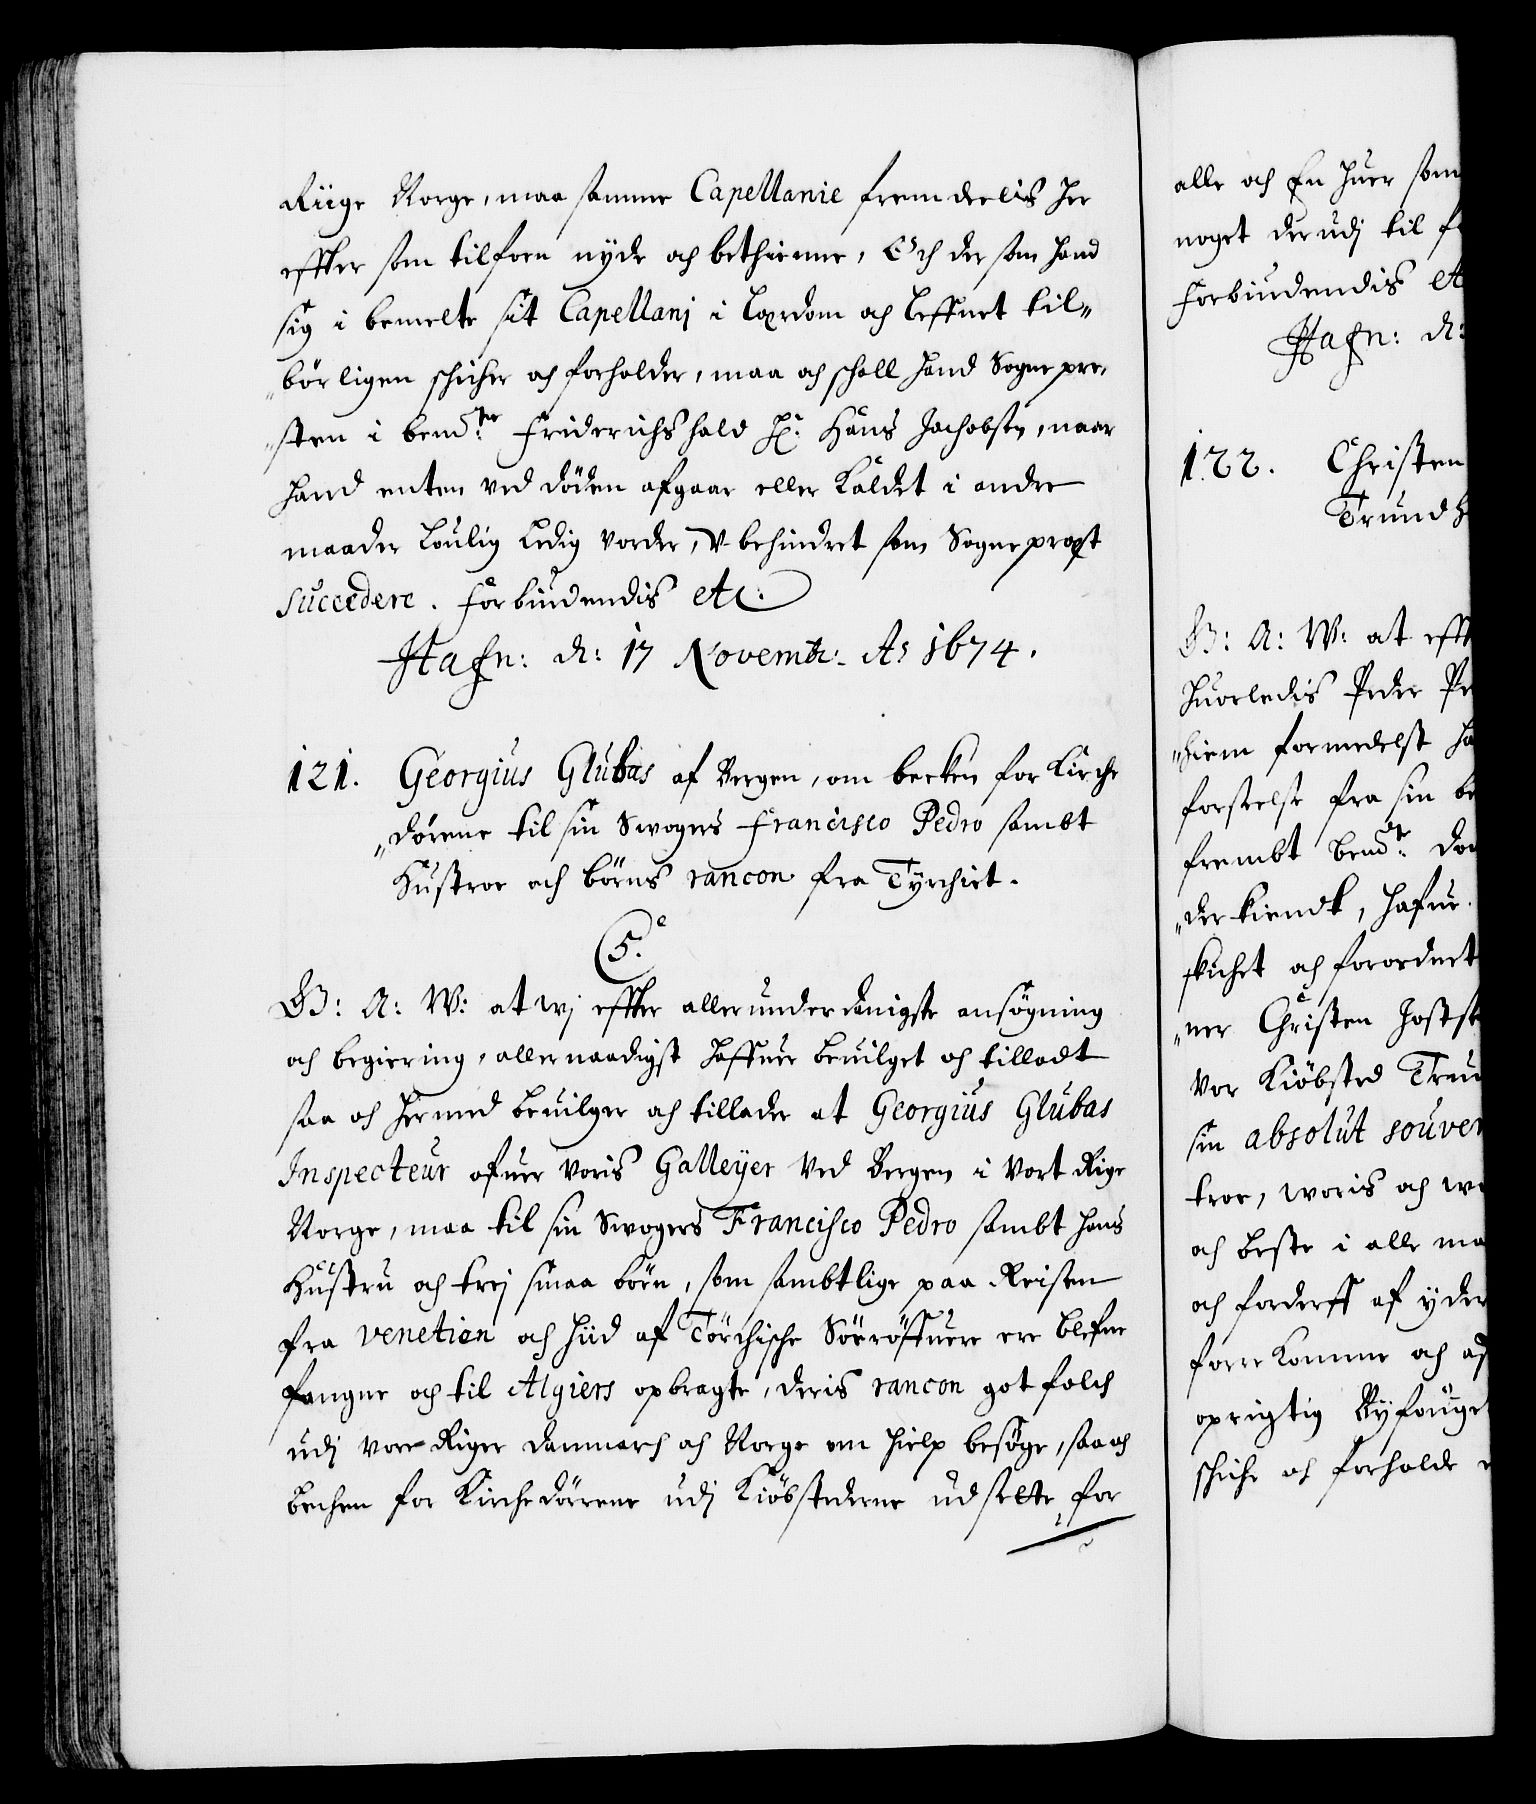 Riige Norge, maa samme Capellanie fremdeelis her
effter som tilforn nyde och bethienne, Och dersom hand
sig i bemelte sit Capellanj i Lærdom och Leffnet til„
„börligen schicher och forholder, maa och schall hand Sognepre„
„sten i bemd:te Friderichshald Hr: Hans Jachobsen, naar
hand enten ved döden afgaar eller Kaldet i andre
maader Loulig Ledig vorder, U-behindret som Sogneprest
succedere. Forbiudendis etc:
Hafn: d: 17 Novembr: Ao 1674.
121. Georgius Glubas af Bergen, om becken for Kirche
„dörene til sin Swogers Francisco Pedro sambt
Hustroe och börns rancon fra Tyrchiet.
C5.
G: A: W: at wj effter allerunderdanigste ansögning
och begiering, allernaadigst haffuer beuilget och tilladt
saa och hermed beuilger och tillader at Georgius Glubas
Inspecteur ofuer Voris Galleyer Ved Bergen i Vort Rige
Norge, maa til sin Swogers Francisco Pedro sambt hans
Hustru och trej smaa börn, som sambtlige paa Reisen
fra Venetien och hiid af Törchische Söeröffuere ere blefne
fangne och til Algiers opbragte, deris rancon got folch
udj vore Riger Danmarch och Norge om hielp besöge, saa och
bechen for Kirchedörrene udj Kiöbstederne udsette, for
alle och En huer som
noget derudj til
Forbiudendis
Hafn: d:
122. Christen
Trundh
G: A: W: at efft
huorledis Peder
„hiem formedelst
forseelse fra sin
frembt bemd:t
„der kiendt, hafuer
skichet och forordnet
„ner Christen
Vor Kiöbsted
sin absolut souver
troe, woris och
och beste i alle
och forderff af yder
forrekomme och
oprigtig Byfouget
schiche och forholde